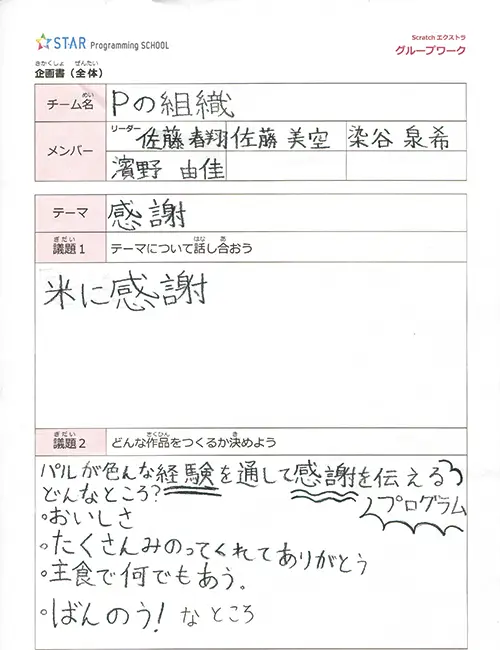 STAR Programming SCHOOL
Scratchエクストラ
グループワーク
きかくしょ ぜんたい
企画書（全体）
めい
チーム名 Pの組織
メンバー リーダー 佐藤春翔 佐藤 美空 染谷 泉希
濱野 由佳
テーマ 感謝
ぎだい はな あ
議題1 テーマについて話し合おう
米に感謝
ぎだい さくひん き
議題2 どんな作品をつくるか決めよう
パルが色んな経験を通して感謝を伝える
プログラム
どんなところ?
・おいしさ
・たくさんみのってくれてありがとう
・主食で何でもあう。
・ばんのう! なところ